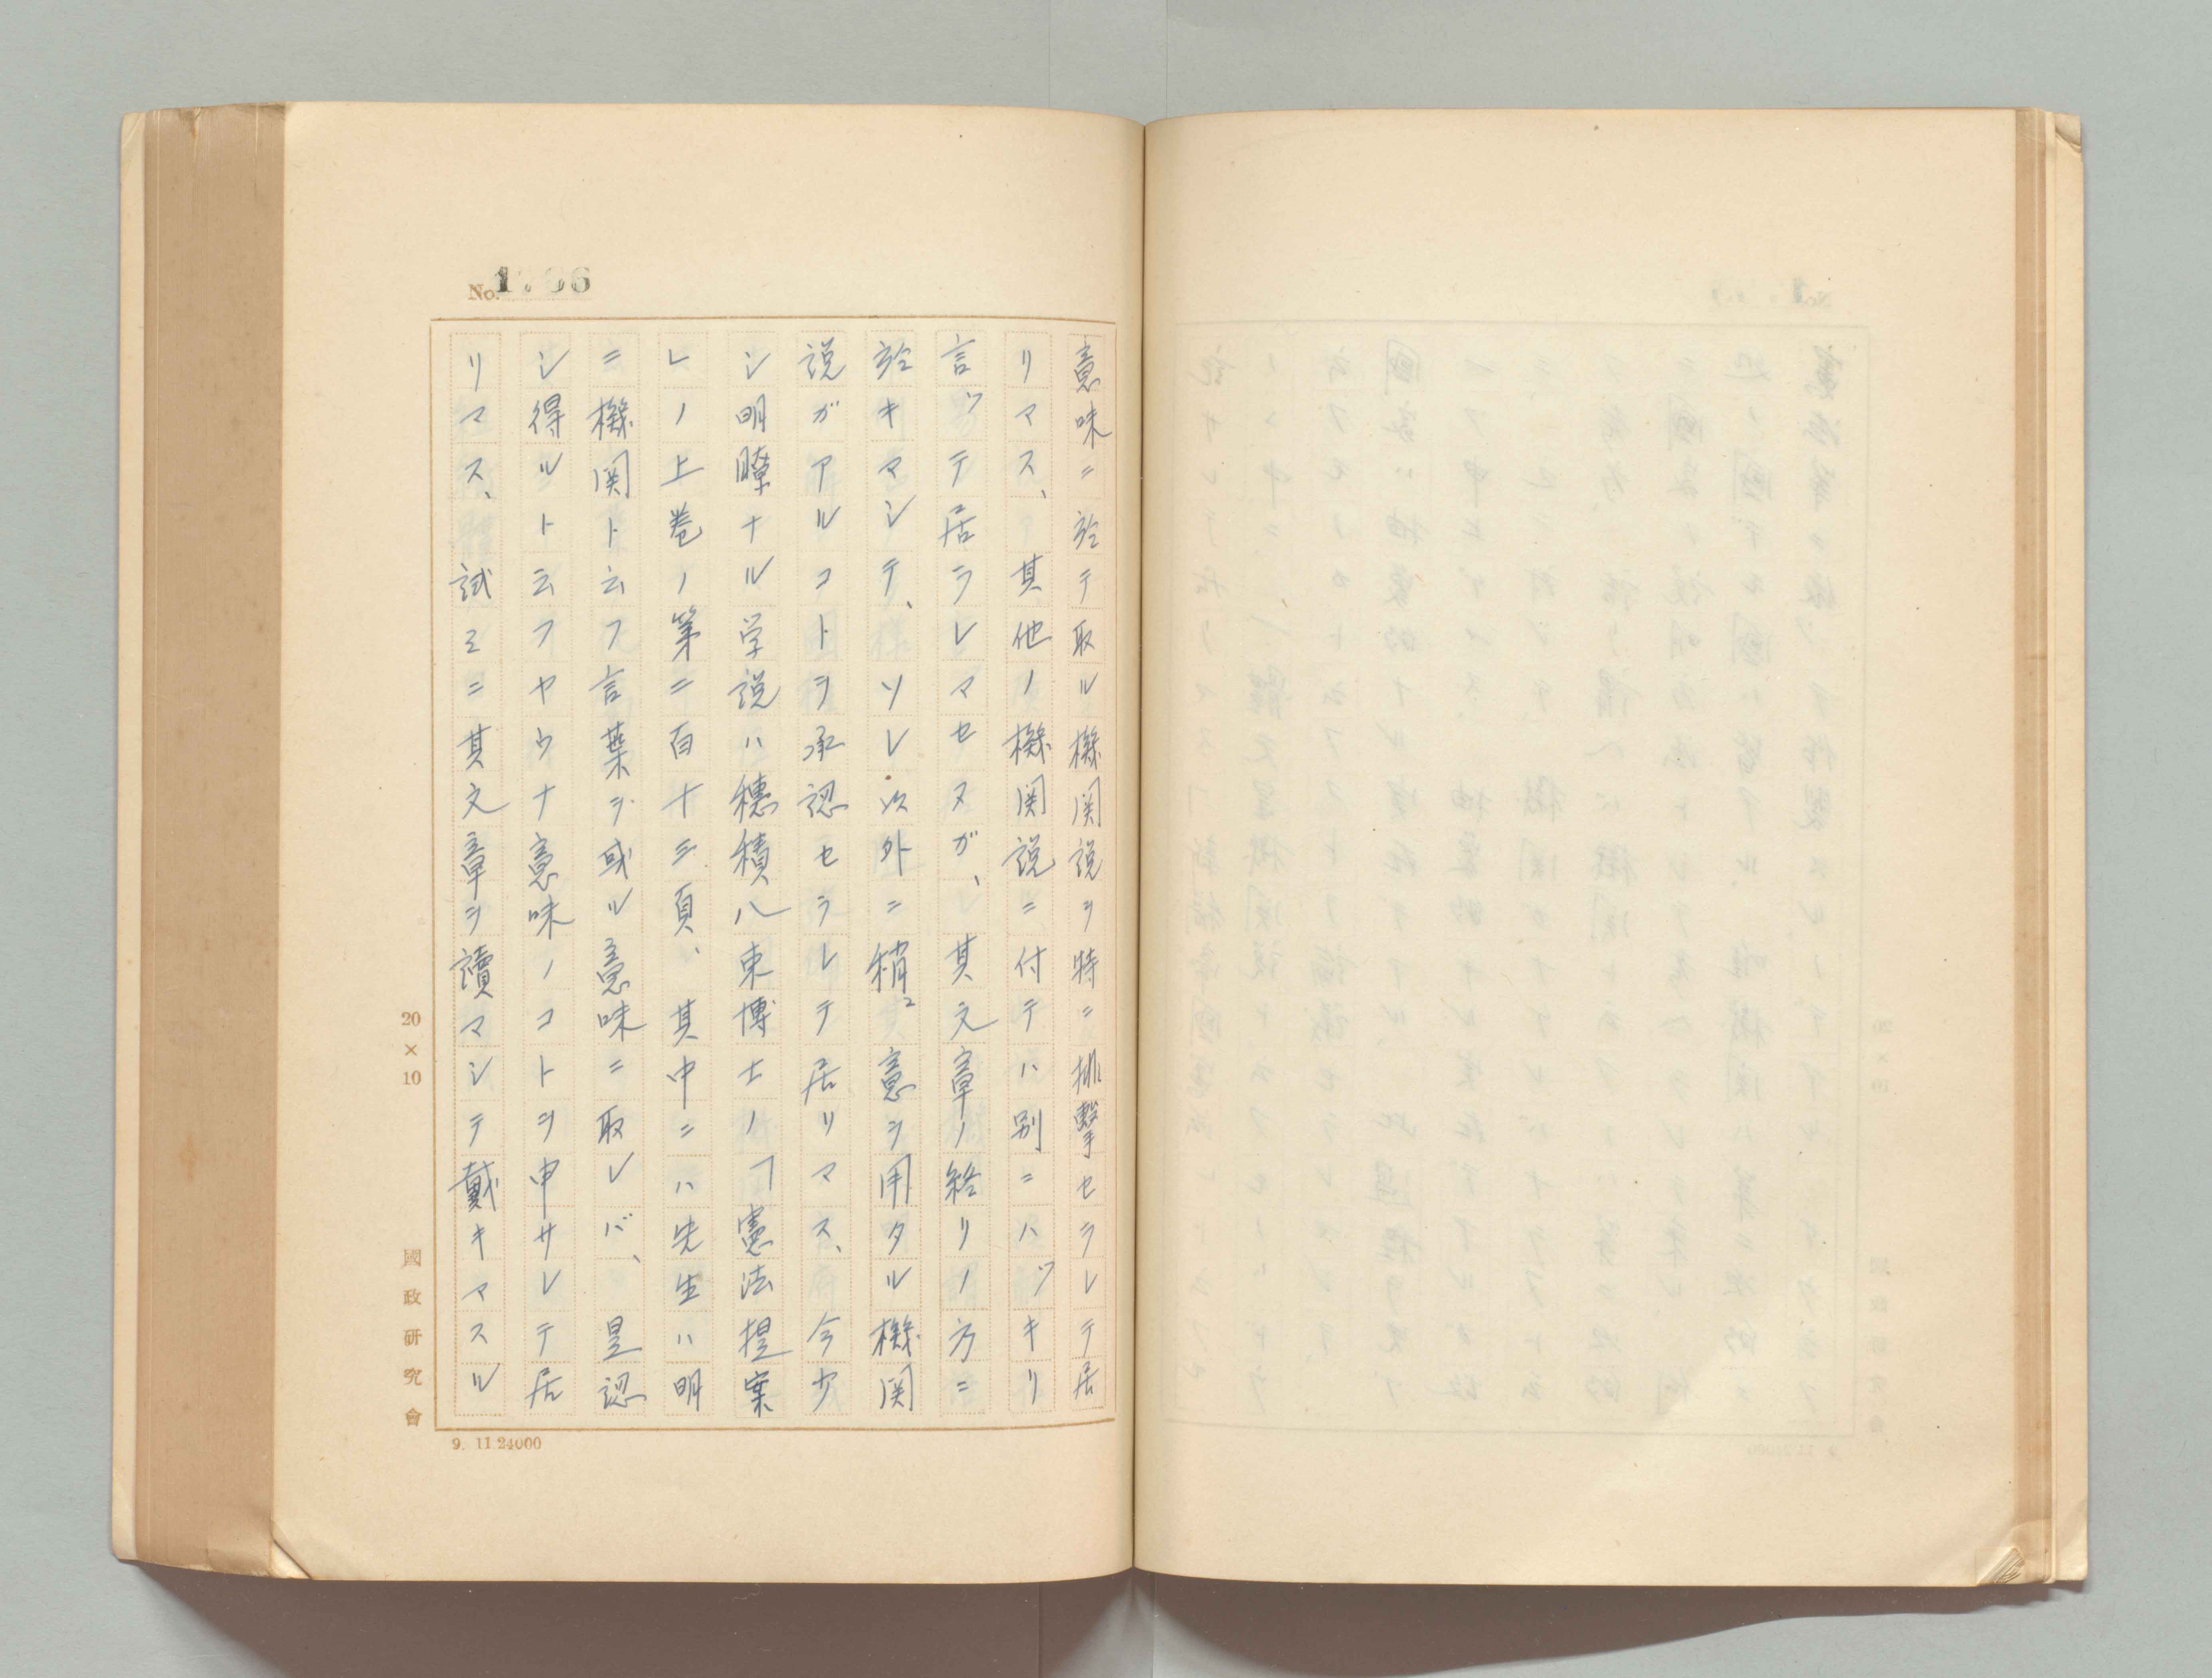 No. 1766
意味ニ於テ取ル機関説ヲ特ニ排撃セラレテ居
リマス、其他ノ機関説ニ付テハ別ニハッキリ
言ッテ居ラレマセヌガ、其文章ノ終リノ方ニ
於キマシテ、ソレ以外ニ稍〻意ヲ用タル機関
説ガアルコトヲ承認セラレテ居リマス、今少
シ明瞭ナル学説ハ穂積八束博士ノ「憲法提案
レノ上巻ノ第二百十三頁、其中ニハ先生ハ明
ニ機関ト云フ言葉ヲ或ル意味ニ取レバ、是認
シ得ルト云フヤウナ意味ノコトヲ申サレテ居
リマス、試ミニ其文章ヲ讀マシテ戴キマスル
20×10
國政研究會
9. 11 24000